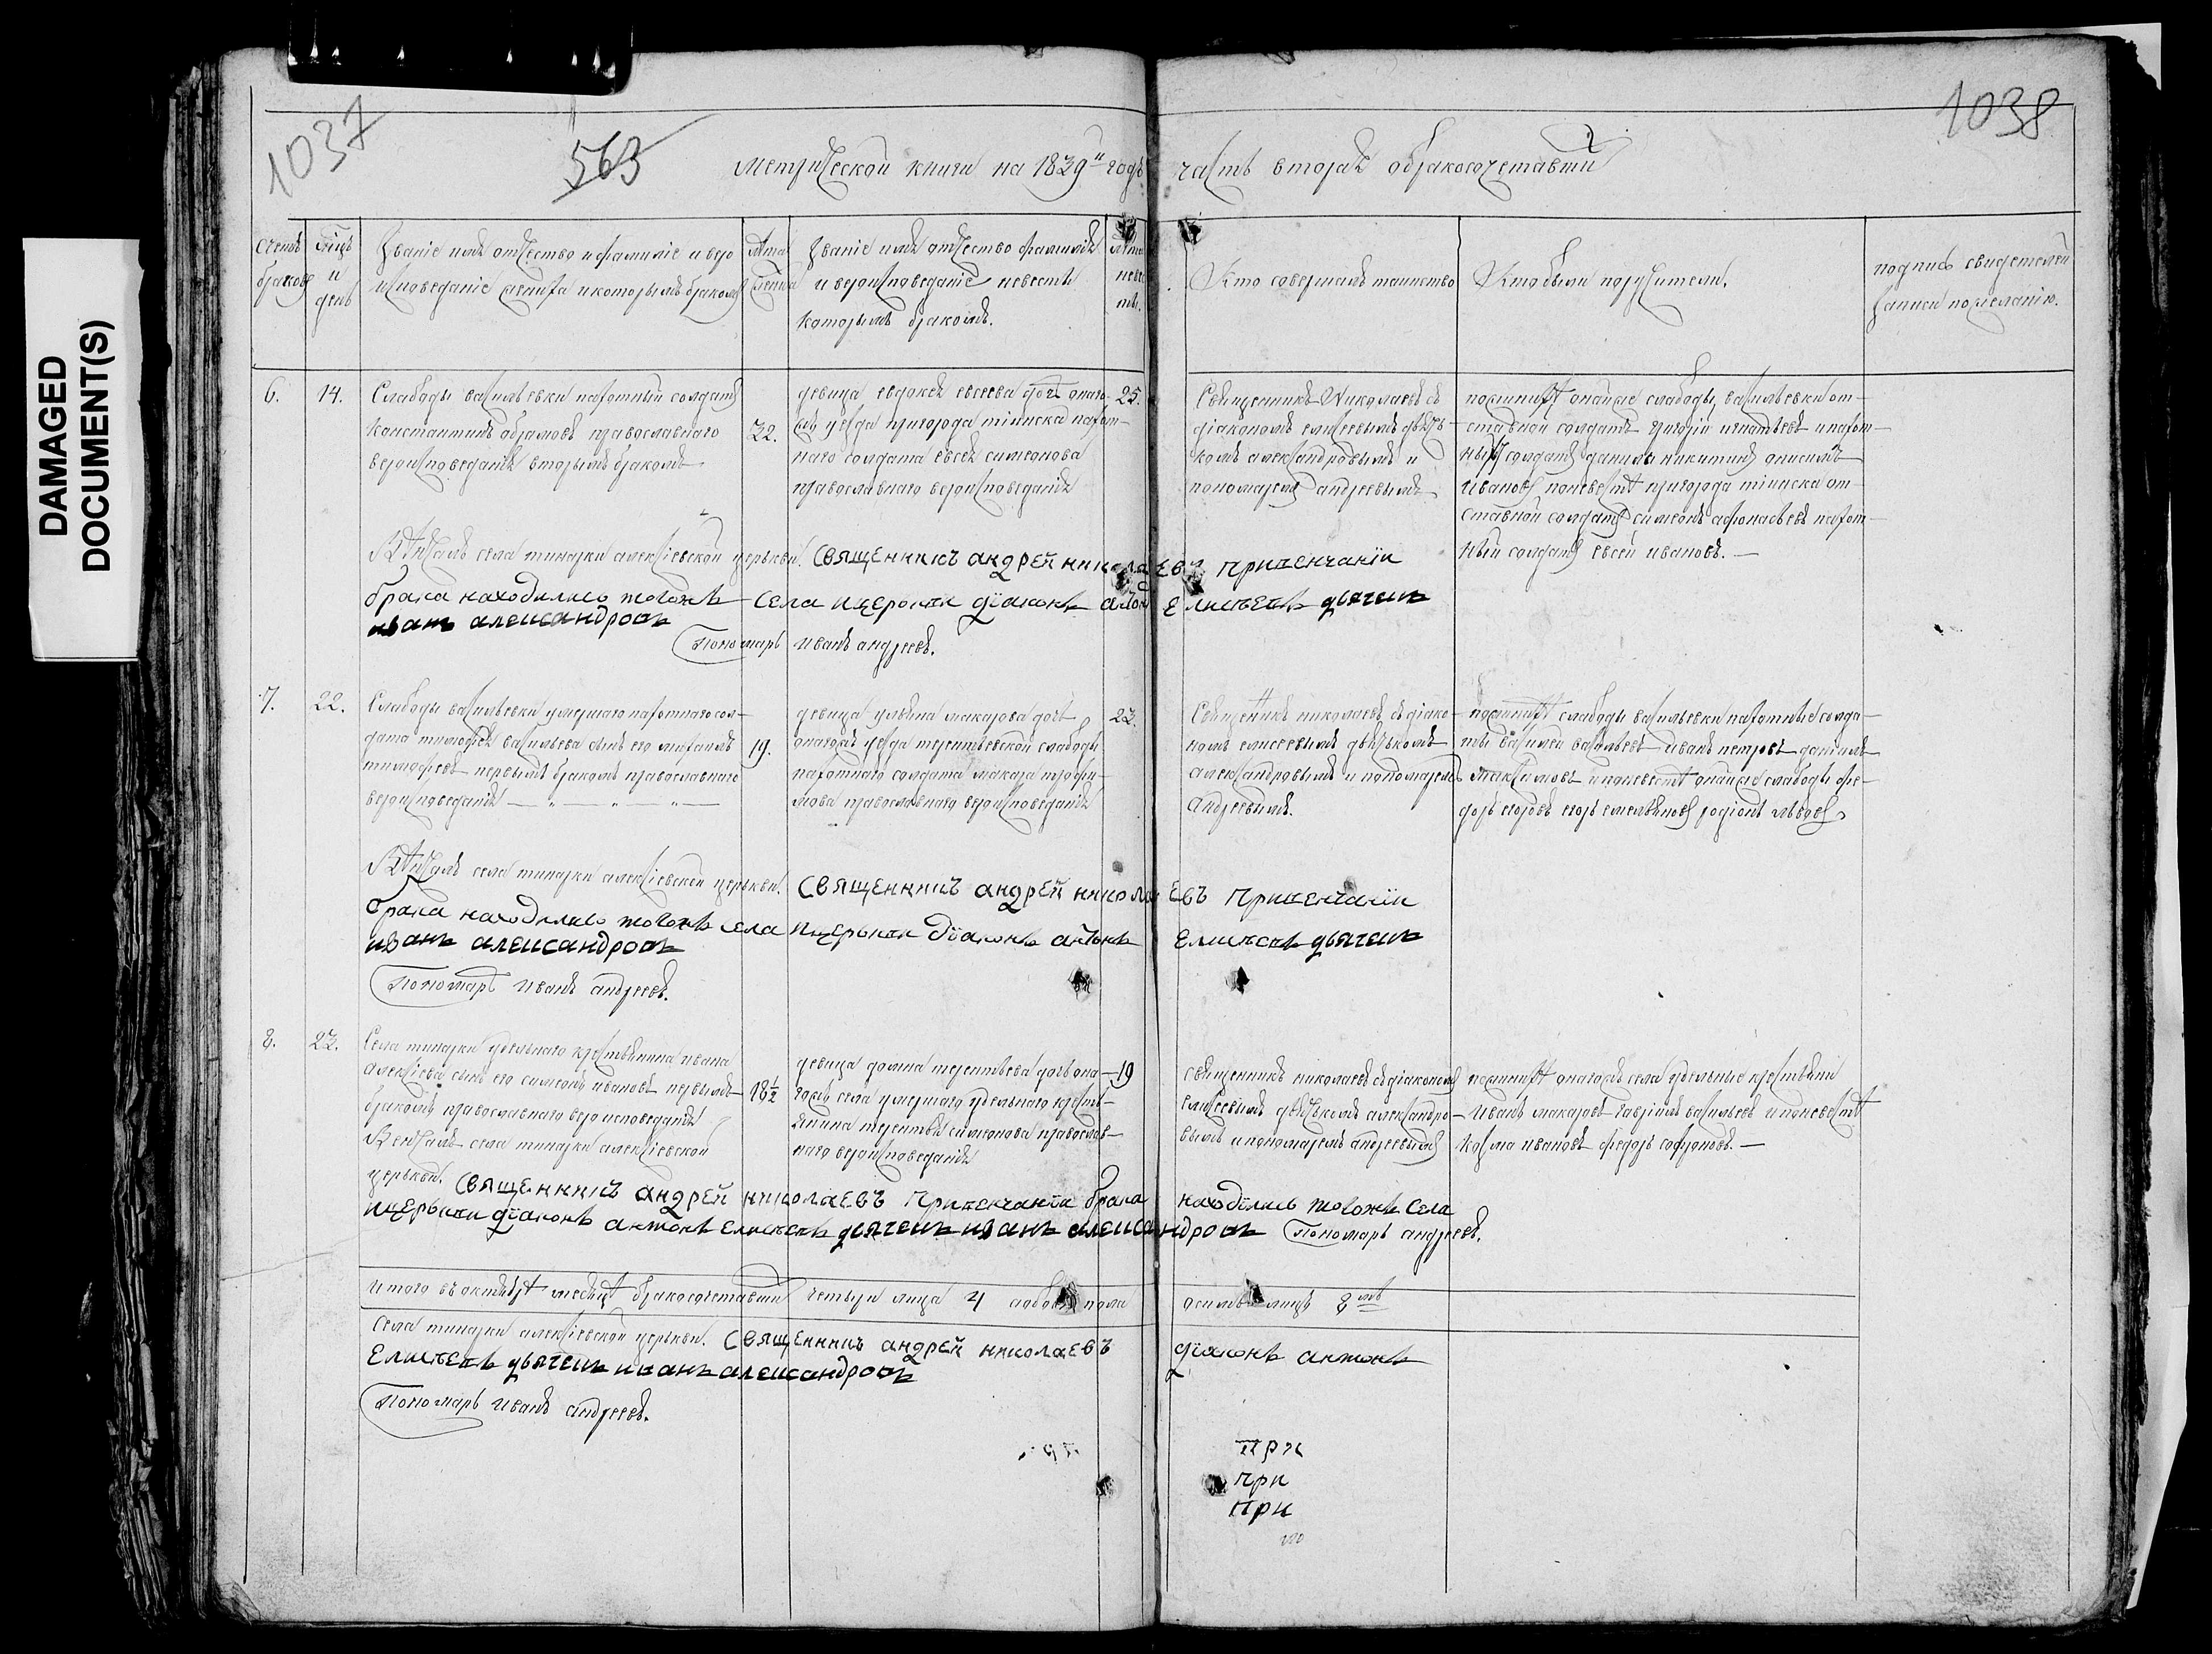 DAMAGED
DOCUMENT(S)
1037
563
1038
Метрической книги на 1839й годъ часть вторая о бракосочетавши
2
Счетъ
браковъ
и
день
Званіе имя отчество и фамиліе и веро
исповеданіе жениха и которымъ бракомъ
Лета
жениха
Званіе имя отчество фамилія
и вероисповеданіе невесты
которымъ бракомъ.
Лета
неве
ты.
Кто совершалъ таинство
Кто были поручители.
подпись свидетелей
записи по желанію.
6.
14.
Слабоды васильевки пахотный солдатъ
Константинъ абрамовъ православнаго
вероисповеданія вторымъ бракомъ
32.
девица евдокея евсеева дочь онаго-
жъ уезда пригорода тиинска пахот-
наго солдата евсея симеонова
православнаго вероисповеданія
25.
Священникъ Николаевъ съ
діакономъ елисеевымъ дьяч-
комъ александровымъ и
пономаремъ андреевымъ
по женихе онайже слабоды, васильевки от-
ставной солдатъ григорій игнатьевъ и пахот-
ныя солдаты данила никитинъ анисимъ
Ивановъ по невесте пригорода тиинска от-
ставной солдатъ симеонъ афонасьевъ пахот-
ный солдатъ евсей ивановъ. —
Венчалъ села тинарки алексіевской церькви. Священникъ андрей николаевъ При венчаніи
брака находились тогожъ села церькви діаконъ антонъ Елисѣевъ дьячекъ
иванъ александровъ
Пономарь иванъ андреевъ.
7.
22.
Слабоды васильевки умершаго пахотнаго сол-
дата тимофея васильева сынъ его михаилъ
тимофеевъ первымъ бракомъ православнаго
вероисповеданія — „ — „ — „ —
19.
девица ульяна макарова дочь
оногожъ уезда терентьевской слабоды
пахотнаго солдата макара трофи-
мова православнаго вероисповеданія
22.
Священникъ николаевъ съ діако-
номъ елисеевымъ дьячькомъ
александровымъ и пономаремъ
андреевымъ.
по женихе слабоды васильевки пахотные солда-
ты василей васильевъ иванъ петровъ данилъ
Максимовъ и по невесте онайже слабоды фе-
доръ егоровъ егоръ емельяновъ родіонъ львовъ
Венчалъ села тинарки алексіевской церькви. Священникъ андрей николаевъ При венчаніи
брака находились тогожъ села церькви діаконъ антонъ Елисѣевъ дьячекъ
иванъ александровъ
Пономарь иванъ андреевъ.
8.
23.
Села тинарки удельнаго крестьянина ивана
алексіева сынъ его симеонъ ивановъ первымъ
бракомъ православнаго вероисповеданія
Венчалъ села тинарки алексіевской
18½
девица домна терентьева дочь она-
гожъ села умершаго удельнаго крест-
янина терентья симеонова православ-
наго вероисповеданія
19
священникъ николаевъ съ діакономъ
елисеевымъ дьячькомъ александро-
вымъ и пономаремъ андреевымъ
по женихе оногожъ села удельные крестьяни
Иванъ макаровъ гавріилъ васильевъ и по невесте
козма ивановъ федоръ софроновъ. —
церькви. Священникъ андрей николаевъ При венчаніи брака находились тогожъ села
церькви діаконъ антонъ Елисѣевъ дьячекъ иванъ александровъ Пономарь андреевъ.
Итого въ октябре месяце бракосочетавши четыри лица 4 а обоего пола осимь лицъ 8мь
Села тинарки алексіевской церькви. Священникъ андрей николаевъ діаконъ антонъ
Елисѣевъ дьячекъ иванъ александровъ
Пономарь иванъ андреевъ.
При
При
При